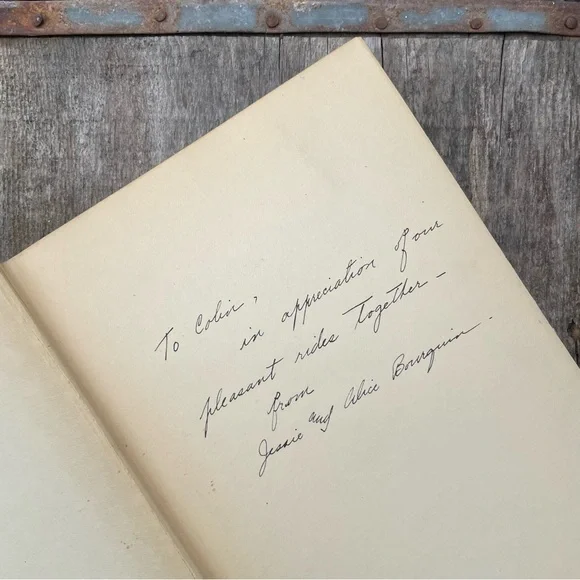 To Colin,
in appreciation of our
pleasant rides together —
from
Jessie and Alice Bourquin —